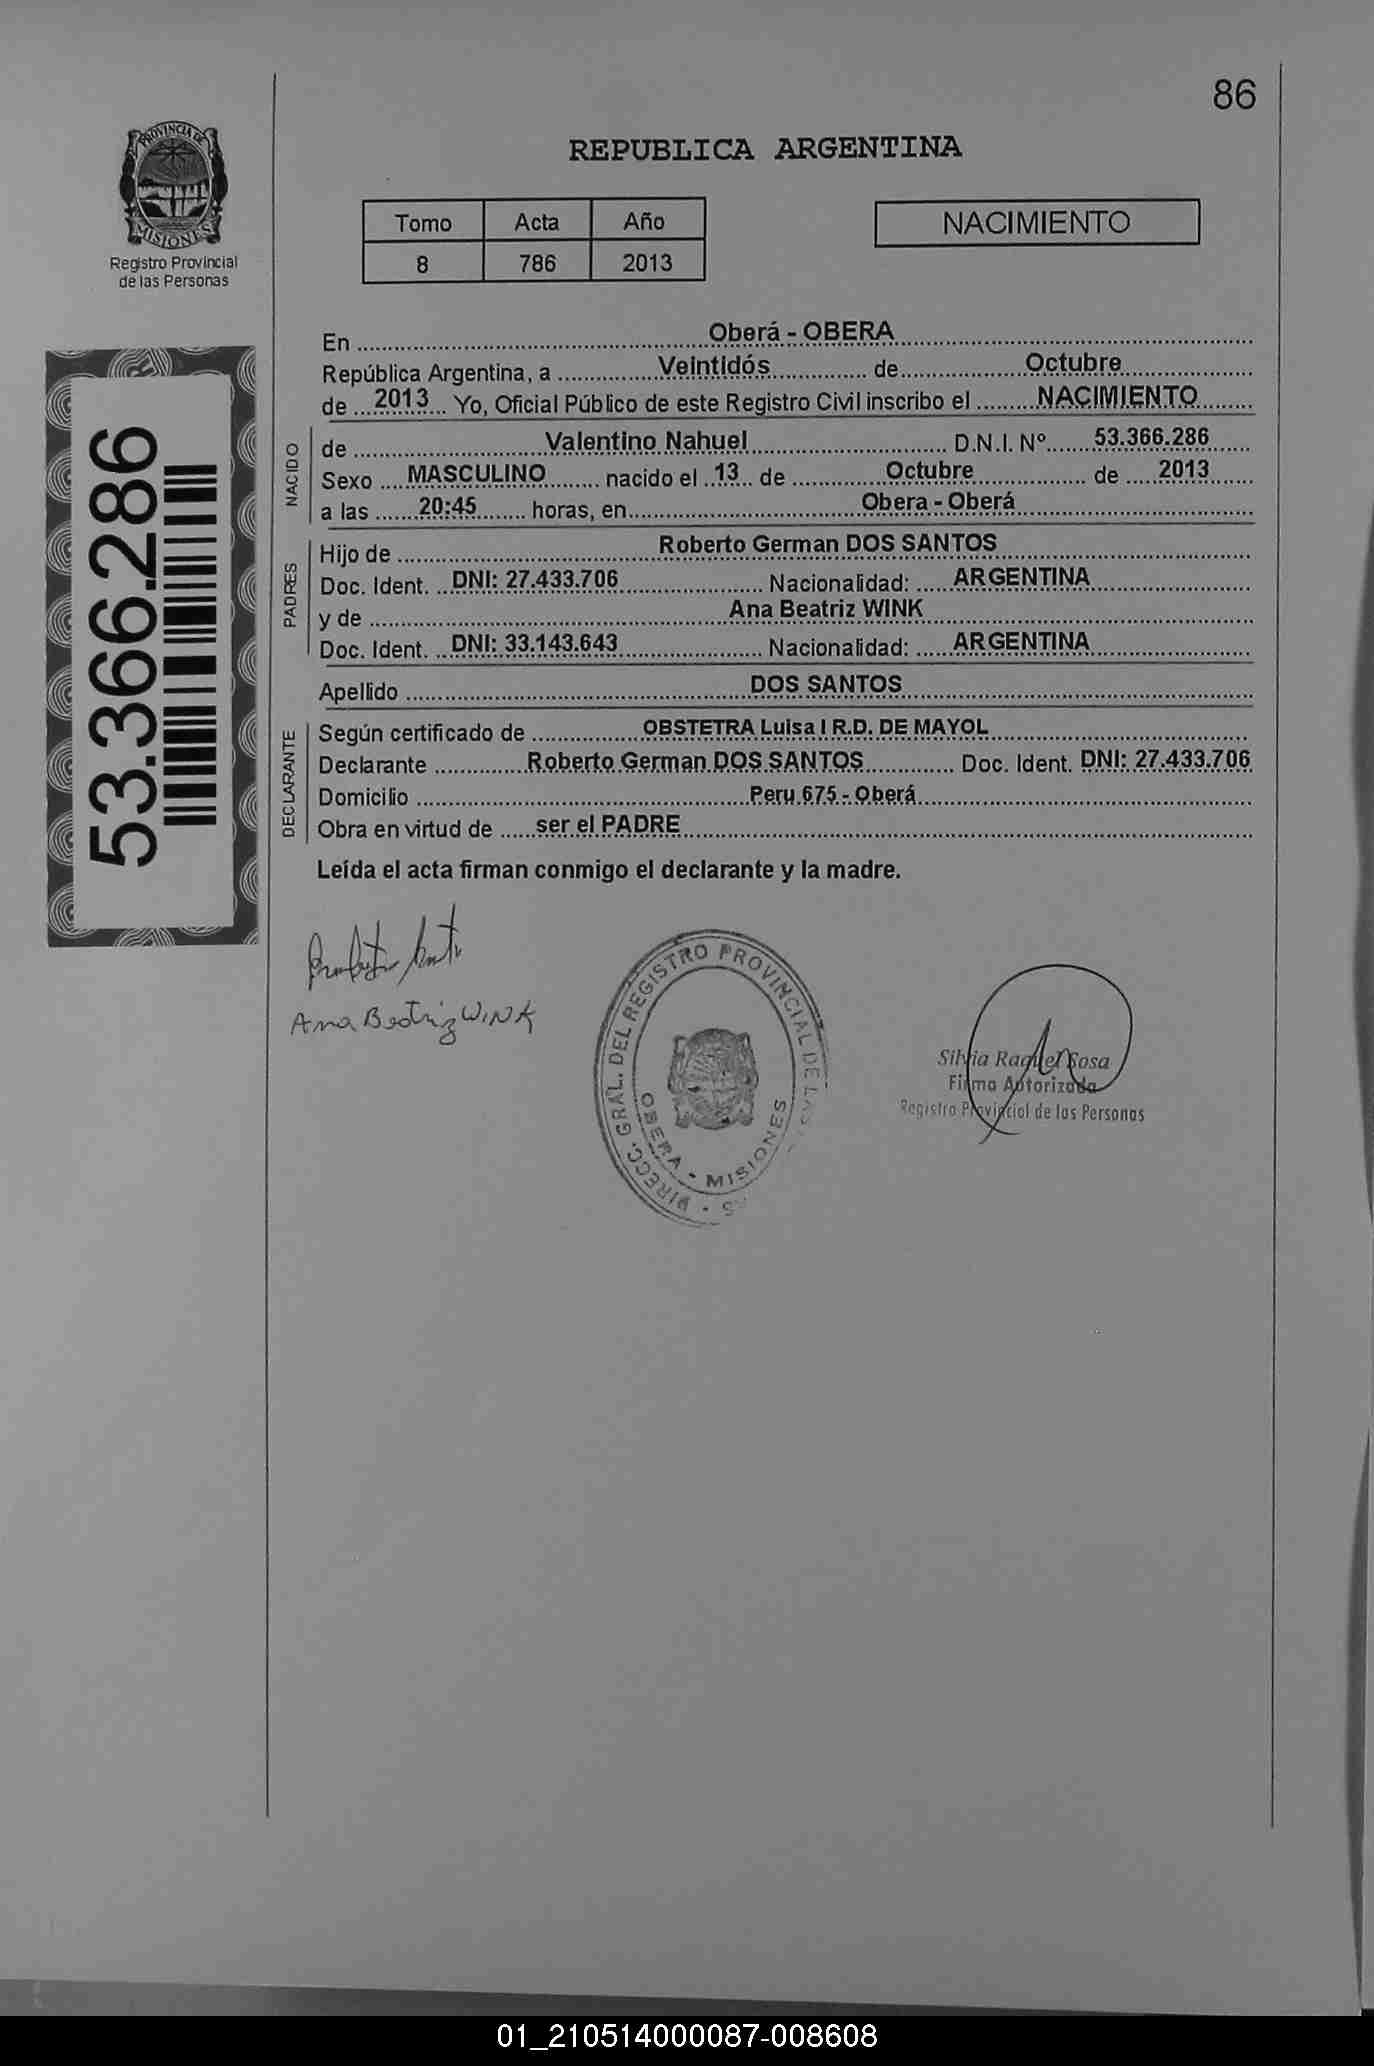 86
PROVINCIA DE
MISIONES
Registro Provincial
de las Personas
REPUBLICA ARGENTINA
Tomo Acta Año
8 786 2013
NACIMIENTO
53.366.286
En Oberá - OBERA
República Argentina, a Veintidós de Octubre
de 2013 Yo, Oficial Público de este Registro Civil inscribo el NACIMIENTO
NACIDO
de Valentino Nahuel D.N.I. Nº 53.366.286
Sexo MASCULINO nacido el 13 de Octubre de 2013
a las 20:45 horas, en Obera - Oberá
PADRES
Hijo de Roberto German DOS SANTOS
Doc. Ident. DNI: 27.433.706 Nacionalidad: ARGENTINA
y de Ana Beatriz WINK
Doc. Ident. DNI: 33.143.643 Nacionalidad: ARGENTINA
Apellido DOS SANTOS
DECLARANTE
Según certificado de OBSTETRA Luisa I R.D. DE MAYOL
Declarante Roberto German DOS SANTOS Doc. Ident. DNI: 27.433.706
Domicilio Peru 675 - Oberá
Obra en virtud de ser el PADRE
Leída el acta firman conmigo el declarante y la madre.
Ana Beatriz WINK
DIRECC. GRAL. DEL REGISTRO PROVINCIAL DE LAS
OBERA - MISIONES
Silvia Raquel Sosa
Firma Autorizada
Registro Provincial de las Personas
01_210514000087-008608